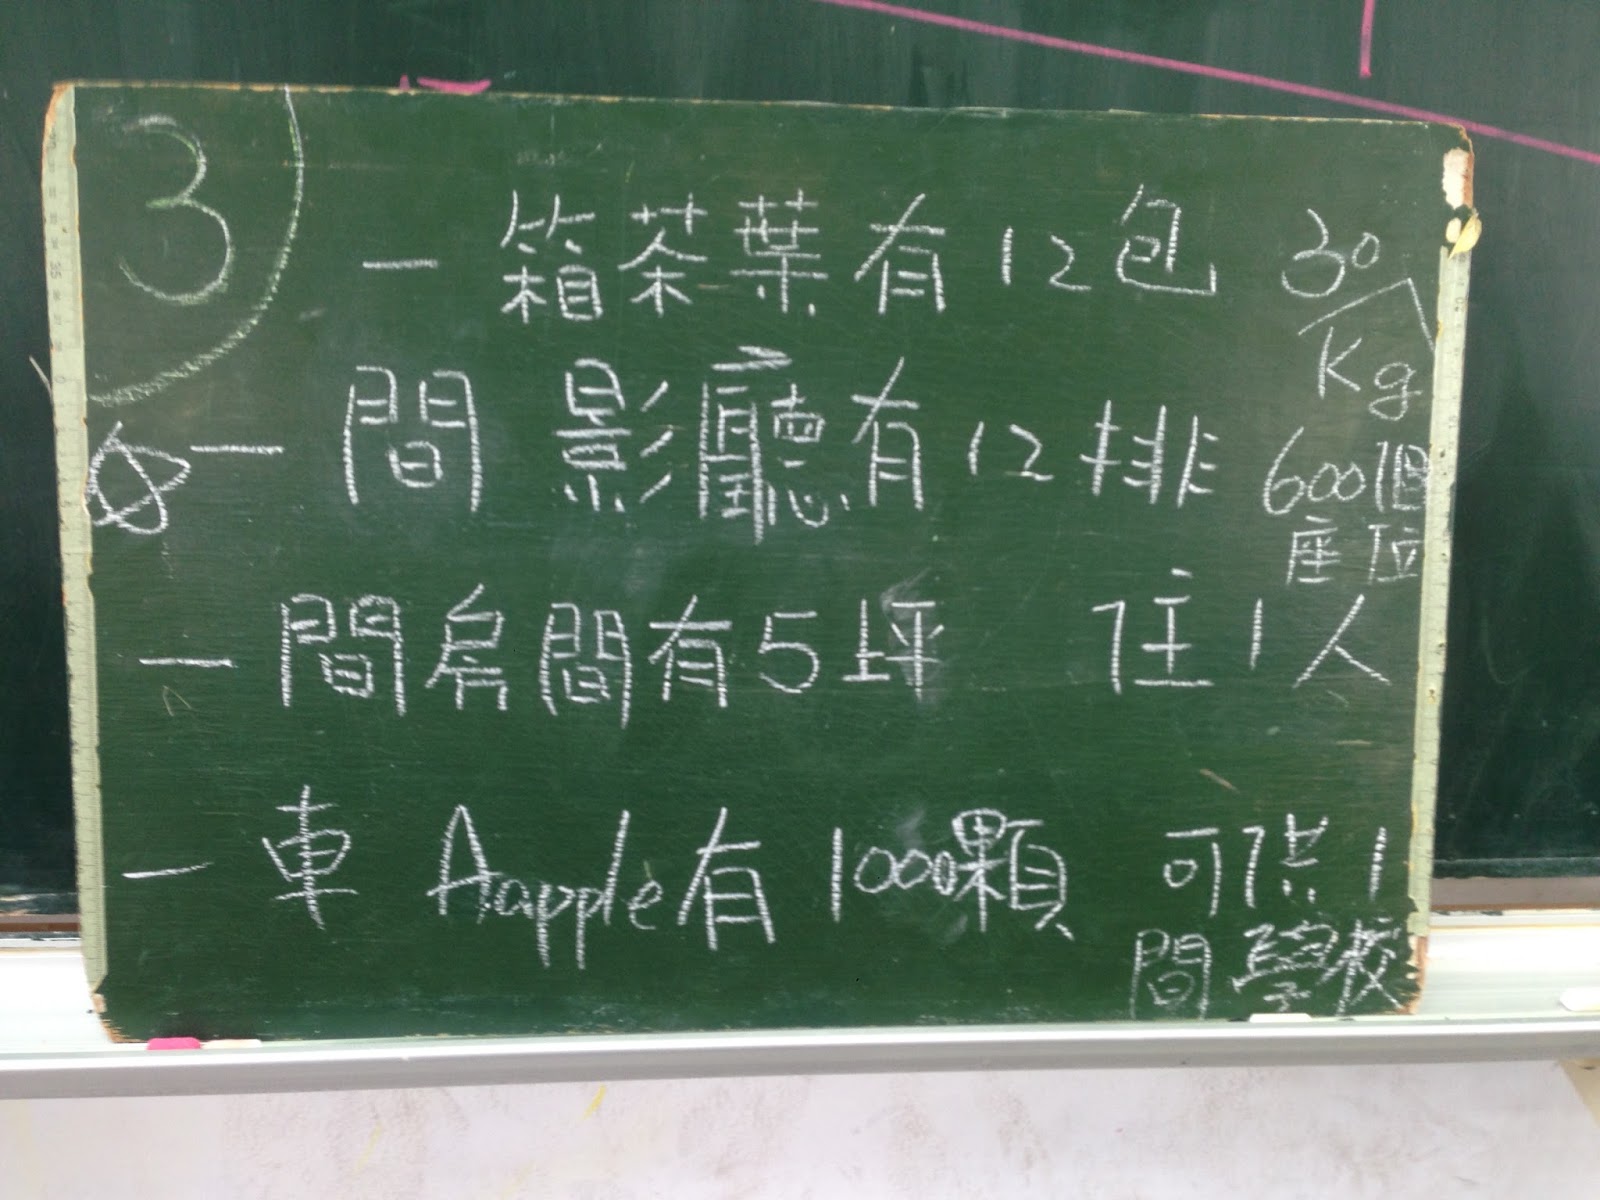 3
一箱茶葉有12包 30
Kg
一間影廳有12排 600個
座位
一間房間有5坪 住1人
一車Aapple有1000顆 可供1
間學校